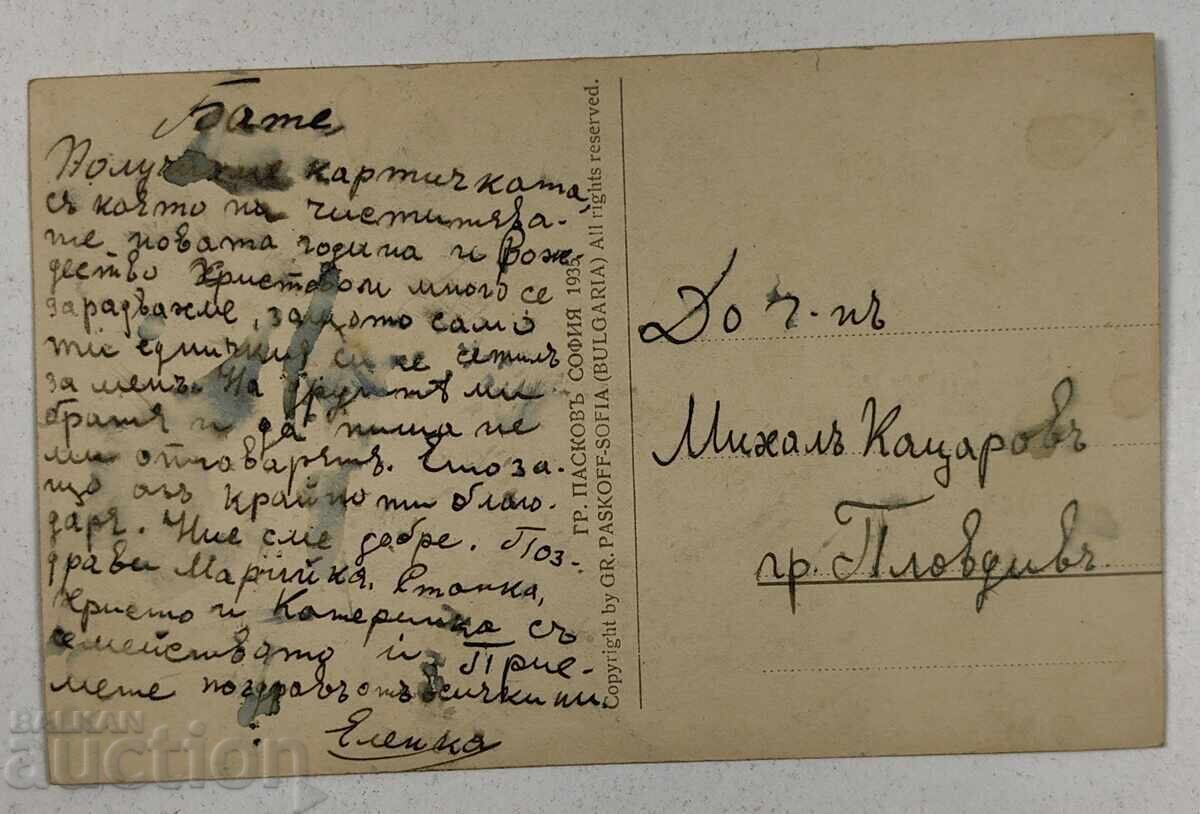 Бате,
Получихме картичката,
съ която ни честитява-
те новата година и Рож-
дество Христово и много се
зарадвахме, защото само
ти единичкия си се сетилъ
за менъ. На другитѣ ми
братя и да пиша не
ми отговарятъ. Ето за-
що азъ крайно ти благо-
даря. Ние сме добре. Поз-
драви Марийка, Стонка,
Христо и Катеринка съ
семейството и. Прие-
мете поздравъ отъ всички ни.
Еленка
ГР. ПАСКОВЪ СОФИЯ 1935.
Copyright by GR. PASKOFF-SOFIA (BULGARIA) All rights reserved.
До г-нъ
Михалъ Кацаровъ
гр. Пловдивъ
BALKAN
auction